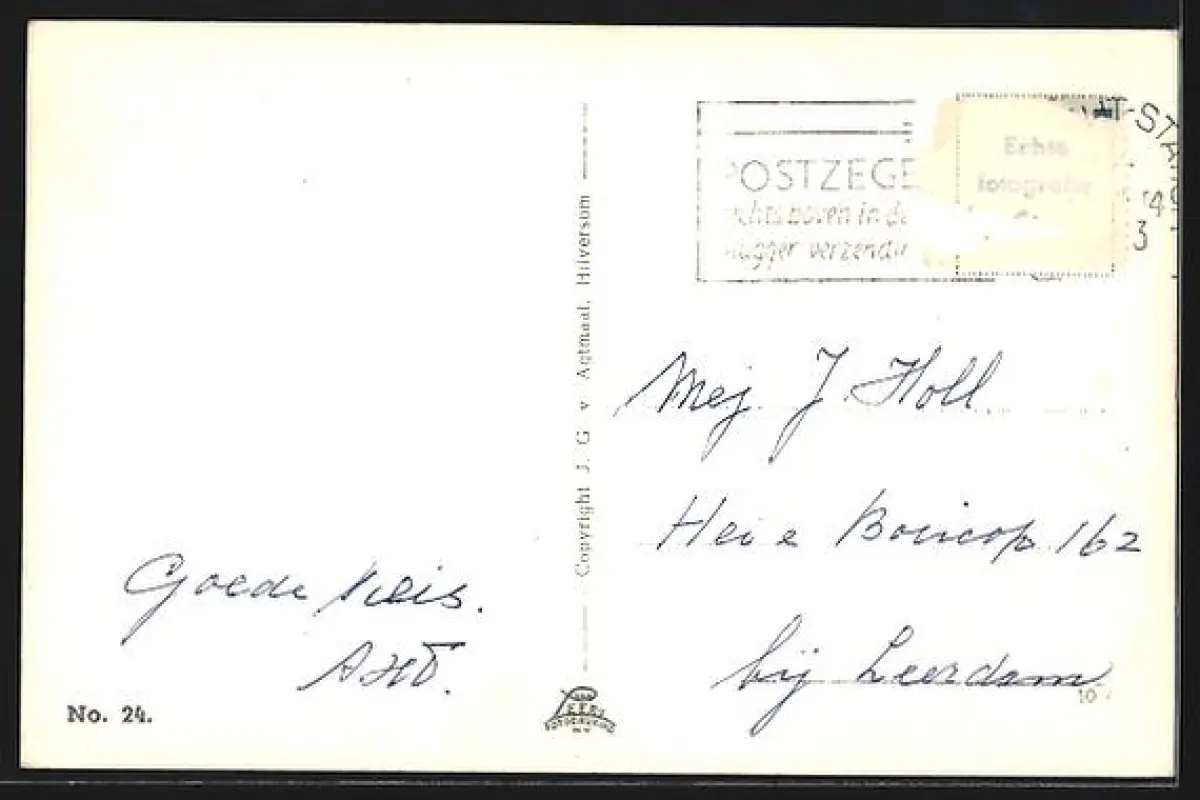 POSTZEGE
rechts boven in de
vlugger verzendin
T-STATION
Echte
fotografie
14
3
Copyright J. G. v Agtmaal, Hilversum
Mej. J. Holl
Hei e Boeicop 162
bij Leerdam
10
Goede Reis.
AHD.
No. 24.